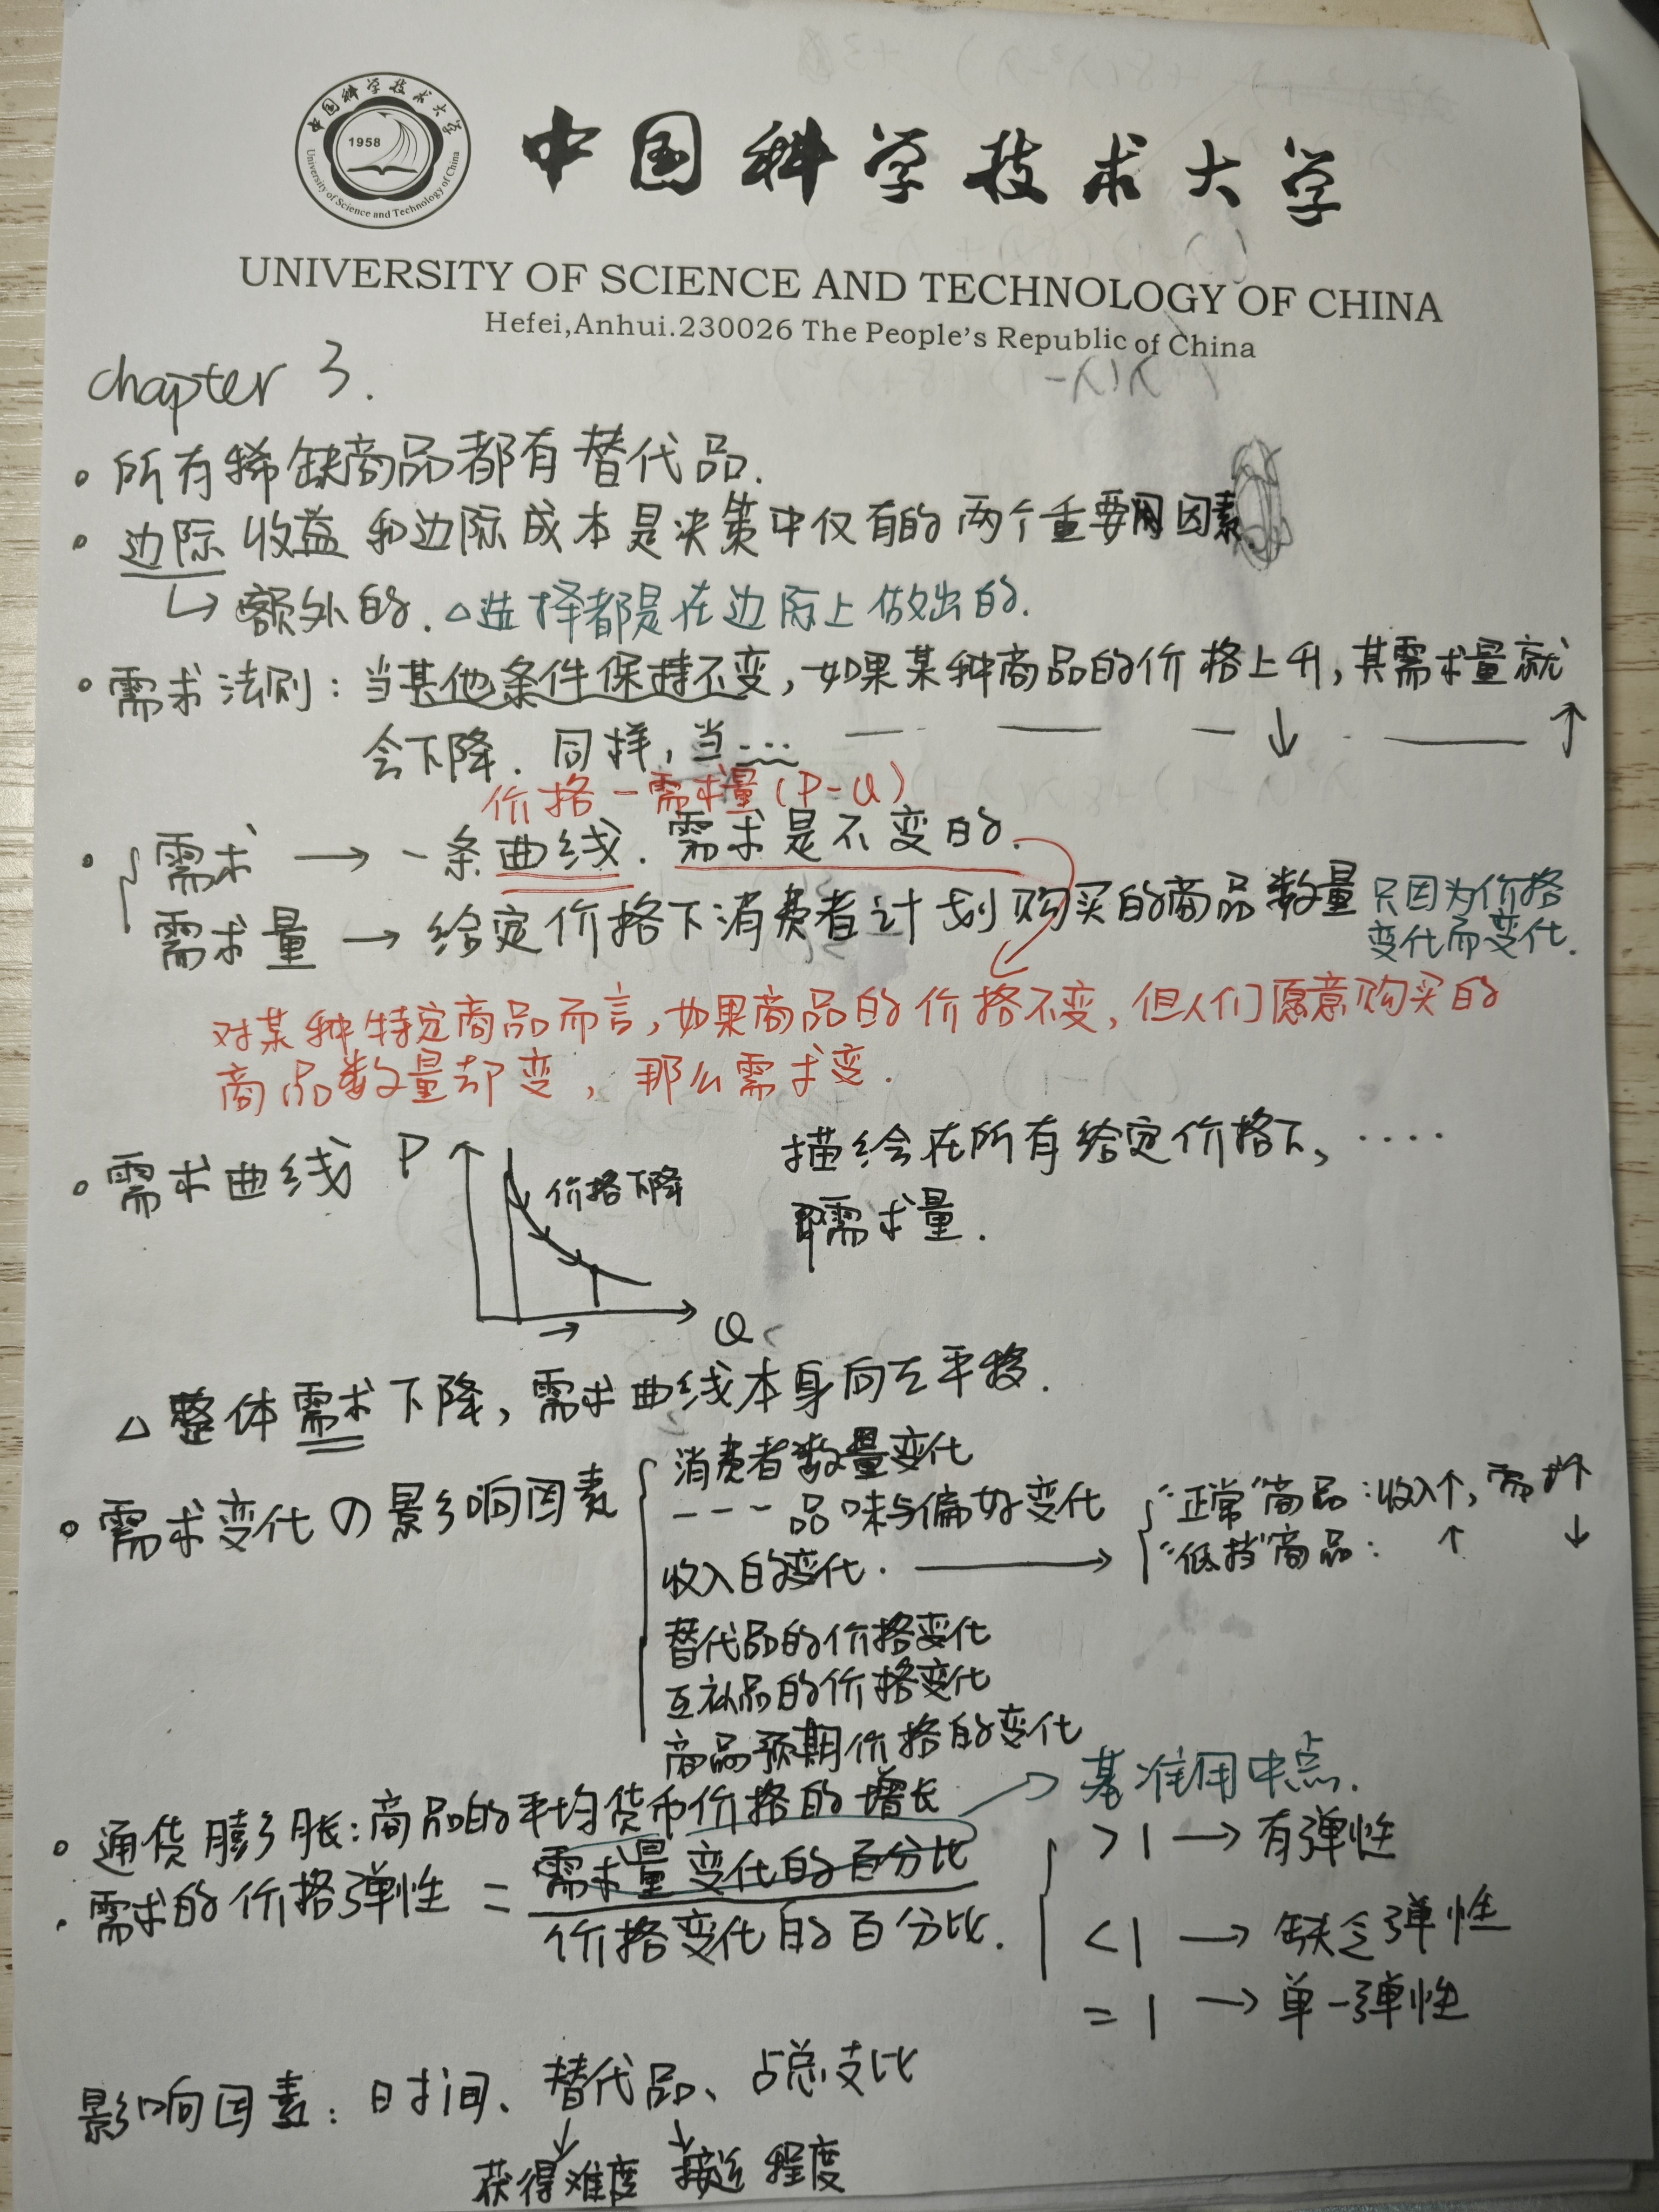 中国科学技术大学
1958
University of Science and Technology of China
中国科学技术大学
UNIVERSITY OF SCIENCE AND TECHNOLOGY OF CHINA
Hefei,Anhui.230026 The People's Republic of China
chapter 3.
所有稀缺商品都有替代品.
边际收益和边际成本是决策中仅有的两个重要因素.
↳ 额外的. △选择都是在边际上做出的.
需求法则: 当其他条件保持不变, 如果某种商品的价格上升, 其需求量就
会下降. 同样, 当… — — — ↓ — ↑
价格—需求量(P-Q)
需求 → 一条曲线. 需求是不变的.
需求量 → 给定价格下消费者计划购买的商品数量 只因为价格
变化而变化.
对某种特定商品而言, 如果商品的价格不变, 但人们愿意购买的
商品数量却变, 那么需求变.
需求曲线 P 价格下降 Q
描绘在所有给定价格下, ····
即需求量.
△ 整体需求下降, 需求曲线本身向左平移.
需求变化の影响因素
消费者数量变化
--- 品味与偏好变化
收入的变化. → "正常"商品: 收入↑, 需求↑
"低挡"商品: ↑ ↓
替代品的价格变化
互补品的价格变化
商品预期价格的变化
通货膨胀: 商品的平均货币价格的增长
→ 基准用中点.
需求的价格弹性 = 需求量变化的百分比
价格变化的百分比.
>1 → 有弹性
<1 → 缺乏弹性
=1 → 单一弹性
影响因素: 时间、替代品、占总支比
↓ ↓
获得难度 接近程度